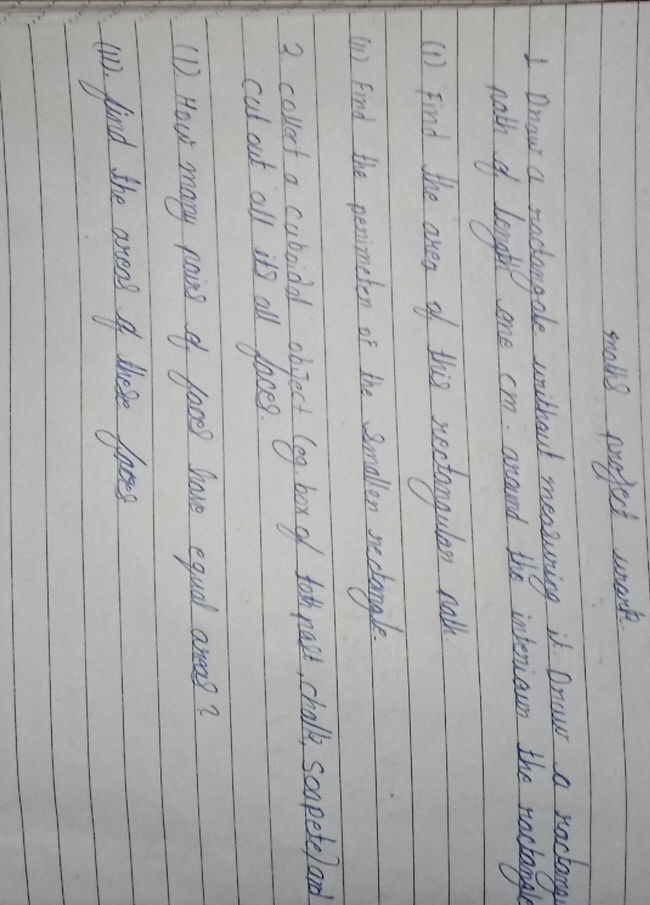 maths project work.
1 Draw a ractangale without measuring it. Draw a ractangu
path of length one cm. around the interiaur the ractangle
(i) Find the area of this rectangular path.
(ii) Find the perimeter of the smaller rectangle.
2 collect a cuboidal object (eg. box of toth past, chalk, soap etc) and
cut out all its all faces.
(i). How many pairs of faces have equal areas?
(ii). find the areas of these faces